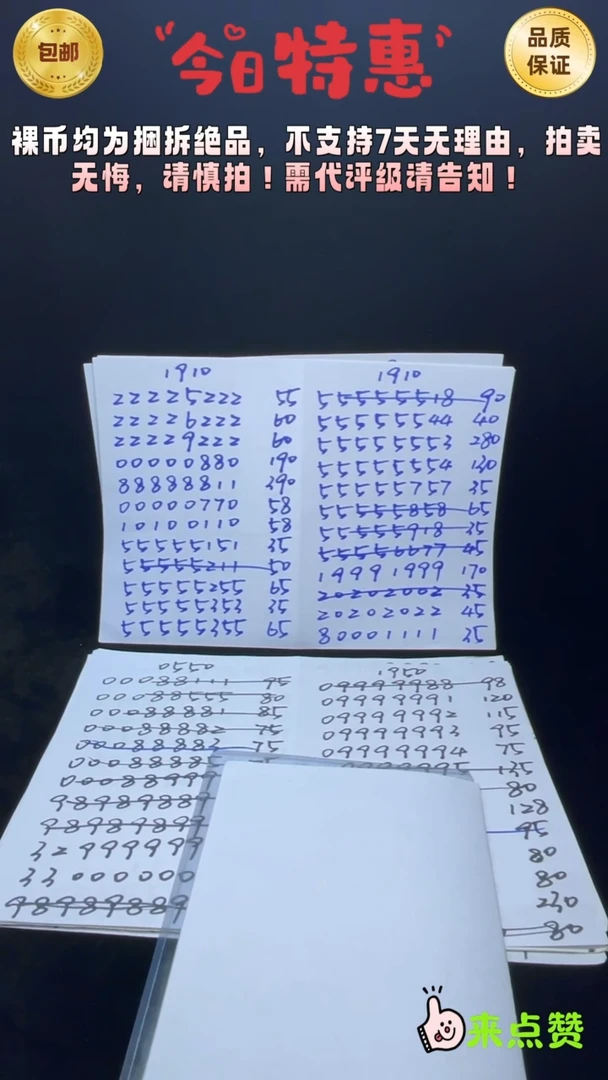 包邮
今日特惠
品质
保证
裸币均为捆拆绝品，不支持7天无理由，拍卖
无悔，请慎拍！需代评级请告知！
1910
22225222 55
22226222 60
22229222 60
00000880 190
88888811 390
00000770 58
10100110 58
55555151 35
55555211 50
55555255 65
55555353 35
55555355 65
1910
55555518 90
55555544 40
55555553 280
55555554 130
55555757 35
55555858 65
55555918 35
55556677 45
19991999 170
20202002 35
20202022 45
80001111 35
0550
00088111 95
00088555 80
00088881 85
00088882 75
00088883 75
00088885
00088999
98989889
98989899
32999999
33000000
98989889
1950
09999988 98
09999991 120
09999992 115
09999993 95
09999994 75
135
80
128
95
80
80
230
80
来点赞